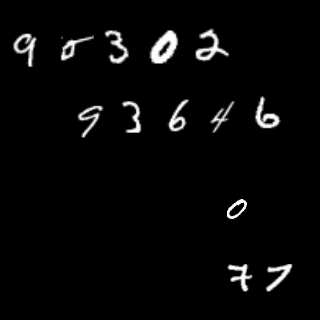 95302
93646
0
77